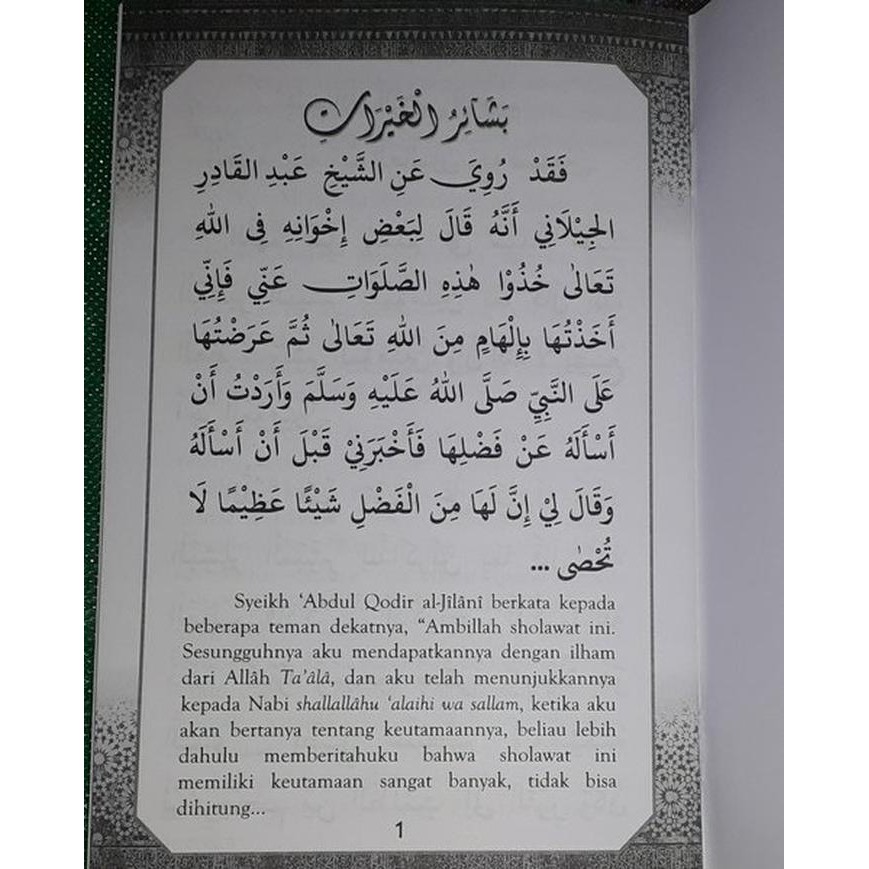 بَشَائِرُ الْخَيْرَاتِ
فَقَدْ رُوِيَ عَنِ الشَّيْخِ عَبْدِ القَادِرِ
الجِيْلَانِي أَنَّهُ قَالَ لِبَعْضِ إِخْوَانِهِ فِى اللهِ
تَعَالَى خُذُوْا هٰذِهِ الصَّلَوَاتِ عَنِّي فَإِنِّي
أَخَذْتُهَا بِإِلْهَامٍ مِنَ اللهِ تَعَالَى ثُمَّ عَرَضْتُهَا
عَلَى النَّبِيِّ صَلَّى اللهُ عَلَيْهِ وَسَلَّمَ وَأَرَدْتُ أَنْ
أَسْأَلَهُ عَنْ فَضْلِهَا فَأَخْبَرَنِيْ قَبْلَ أَنْ أَسْأَلَهُ
وَقَالَ لِيْ إِنَّ لَهَا مِنَ الْفَضْلِ شَيْئًا عَظِيْمًا لَا
تُحْصٰى ...
Syeikh ‘Abdul Qodir al-Jîlânî berkata kepada
beberapa teman dekatnya, “Ambillah sholawat ini.
Sesungguhnya aku mendapatkannya dengan ilham
dari Allâh Ta’âlâ, dan aku telah menunjukkannya
kepada Nabi shallallâhu ‘alaihi wa sallam, ketika aku
akan bertanya tentang keutamaannya, beliau lebih
dahulu memberitahuku bahwa sholawat ini
memiliki keutamaan sangat banyak, tidak bisa
dihitung...
1